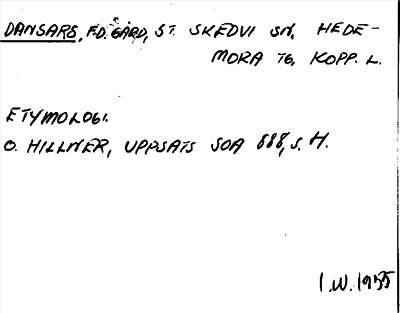 DANSARS, F.D. GÅRD, ST. SKEDVI SN, HEDE-
MORA TG, KOPP. L.
ETYMOLOGI.
O. HILLNER, UPPSATS SOA 888, S. H.
I.W. 1955